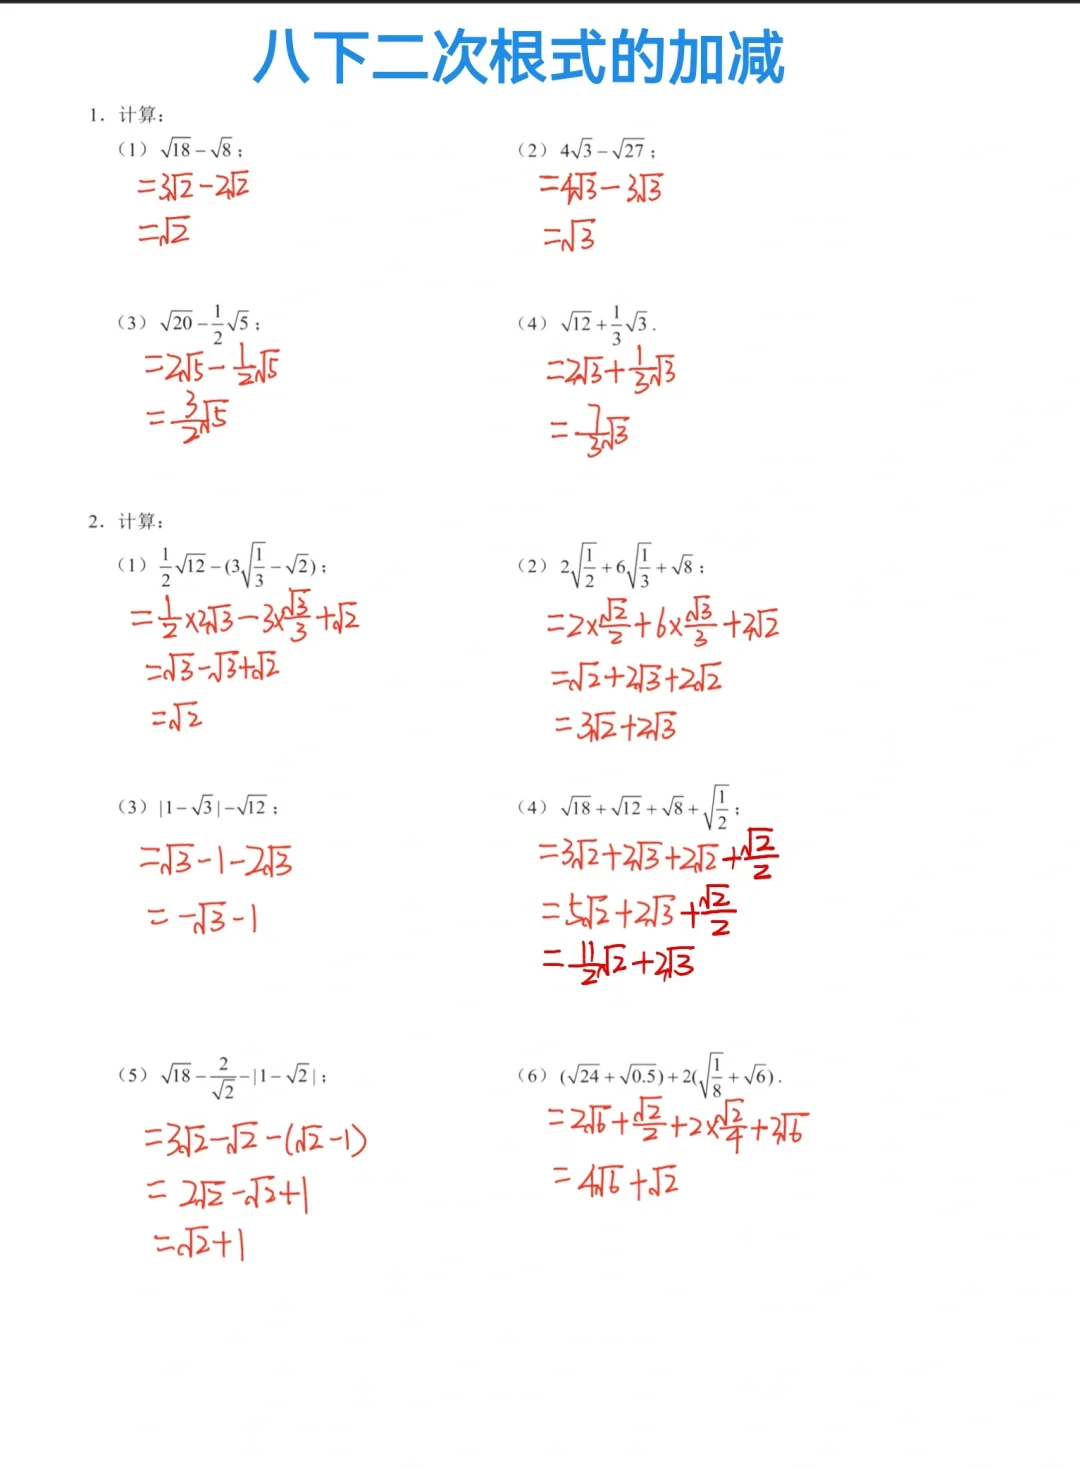 八下二次根式的加减
1. 计算:
(1) √18 − √8 ;
=3√2−2√2
=√2
(2) 4√3 − √27 ;
=4√3−3√3
=√3
(3) √20 − 1/2 √5 ;
=2√5−1/2 √5
=3/2 √5
(4) √12 + 1/3 √3 .
=2√3+1/3 √3
=7/3 √3
2. 计算:
(1) 1/2 √12 − (3√(1/3) − √2) ;
=1/2×2√3−3×√3/3+√2
=√3−√3+√2
=√2
(2) 2√(1/2) + 6√(1/3) + √8 ;
=2×√2/2+6×√3/3+2√2
=√2+2√3+2√2
=3√2+2√3
(3) |1−√3|−√12 ;
=√3−1−2√3
=−√3−1
(4) √18 + √12 + √8 + √(1/2) ;
=3√2+2√3+2√2+√2/2
=5√2+2√3+√2/2
=11/2 √2+2√3
(5) √18 − 2/√2 − |1−√2| ;
=3√2−√2−(√2−1)
=2√2−√2+1
=√2+1
(6) (√24 + √0.5) + 2(√(1/8) + √6) .
=2√6+√2/2+2×√2/4+2√6
=4√6+√2